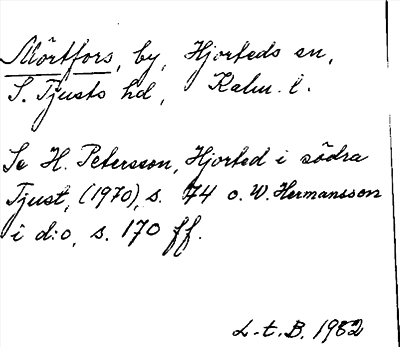 Mörtfors, by, Hjorteds sn,
S. Tjusts hd, Kalm. l.
Se H. Petersson, Hjorted i södra
Tjust, (1970), s. 74 o. W. Hermansson
i d:o, s. 170 ff.
L.t.B. 1982